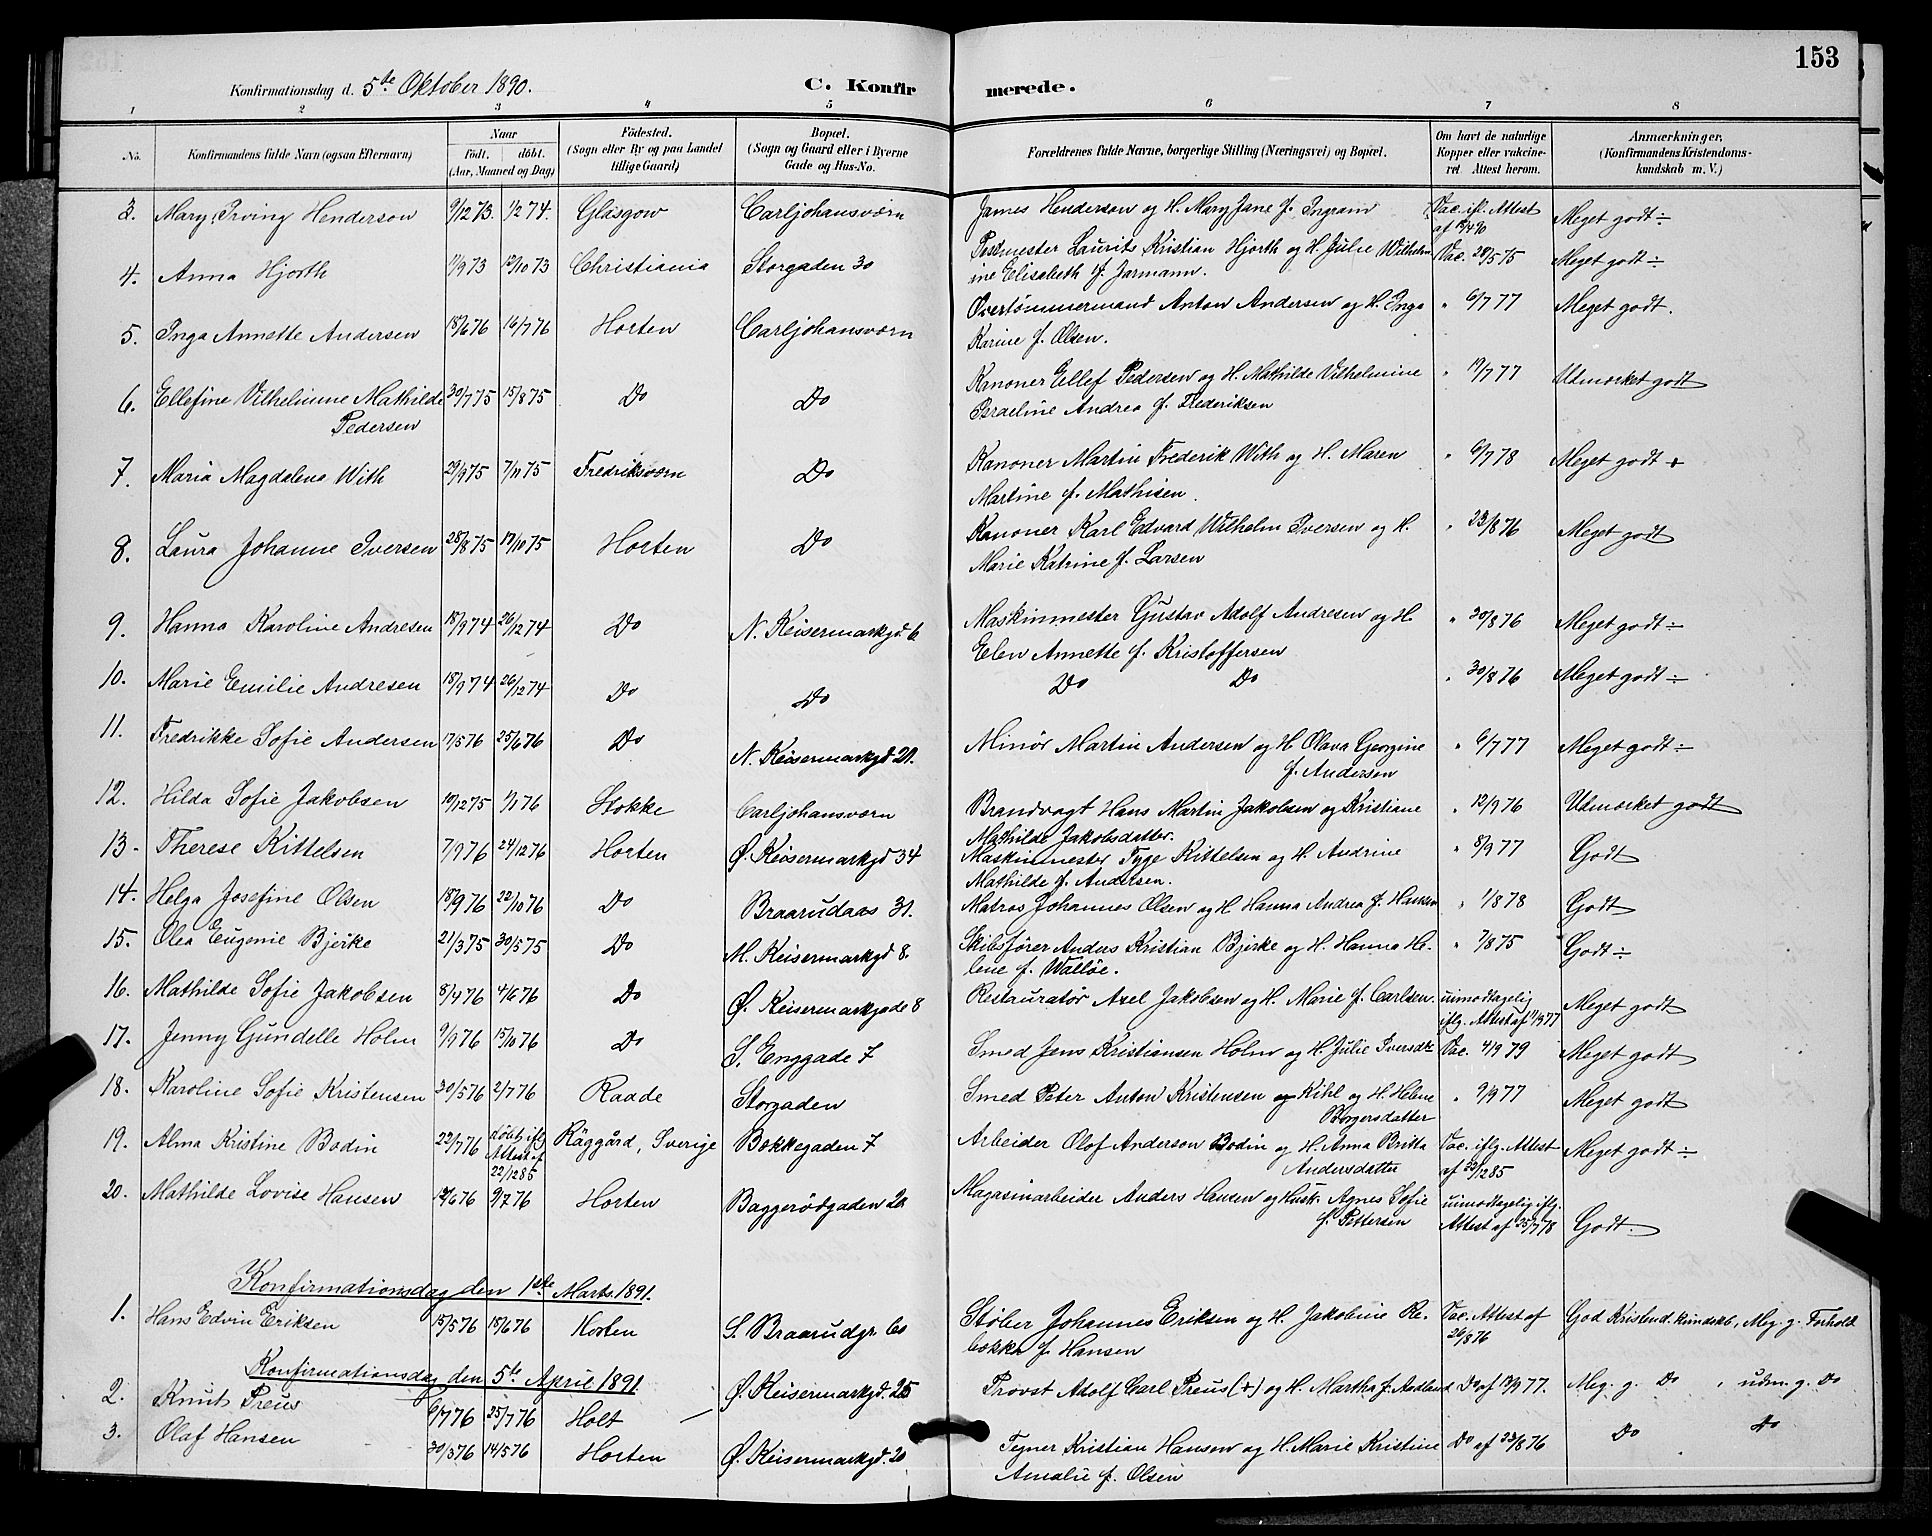 153
Konfirmationsdag d. 5te Oktober 1890. C. Konfirmerede.
1 2 3 4 5 6 7 8
No. Konfirmandens fulde Navn (ogsaa Efternavn) Naar født. døbt. (Aar, Maaned og Dag) Fødested. (Sogn eller By og paa Landet tillige Gaard) Bopæl. (Sogn og Gaard eller i Byerne Gade og Hus-No. Forældrenes fulde Navne, borgerlige Stilling (Næringsvei) og Bopæl. Om havt de naturlige Kopper eller vaccineret Attest herom. Anmærkninger. (Konfirmandens Kristendomskundskab m. V.)
3. Mary Irving Henderson 9/12 73. 1/2 74. Glasgow Carljohansværn James Henderson og H. Mary Jane f. Ingram Vac. ifl. Attest Meget godt ÷
af
4. Anna Hjorth 11/9 73 12/10 73 Christiania Storgaden 30 Postmester Laurits Kristian Hjorth og H. Julie Wilhelm Vac. 28/5 75 Meget godt ÷
ine Elisabeth f. Jarmann.
5. Inga Annette Andersen 18/6 76 16/7 76 Horten Carljohansværn Overtømmermand Anton Andersen og H. Inga " 6/7 77 Meget godt.
Karine f. Olsen.
6. Ellefine Vilhelmine Mathilde 30/7 75 15/8 75 Do Do Kanoner Ellef Pedersen og H. Mathilde Vilhelmine " 19/7 77 Udmærket godt
Pedersen Israeline Andrea f. Frederiksen
7. Maria Magdalena With 29/9 75 7/11 75 Fredriksværn Do Kanoner Martin Frederik With og H. Maren " 6/7 78 Meget godt +
Martine f. Mathisen.
8. Laura Johanne Iversen 28/8 75 17/10 75 Horten Do Kanoner Karl Edvard Wilhelm Iversen og H. " 23/8 76 Meget godt
Marie Katrine f. Larsen
9. Hanna Karoline Andresen 18/9 74 26/12 74 Do N. Keisermarkgd 6 Maskinmester Gustav Adolf Andresen og H. " 30/8 76 Meget godt ÷
Elen Annette f. Kristoffersen
10. Marie Emilie Andresen 18/9 74 26/12 74 Do Do Do Do " 30/8 76 Meget godt ÷
11. Fredrikke Sofie Andersen 17/5 76 25/6 76 Do N. Keisermarkgd 21. Minør Martin Andersen og H. Olava Georgine " 6/7 77 Meget godt ÷
f. Andersen
12. Hilda Sofie Jakobsen 10/12 75 1/1 76 Stokke Carljohansværn Brandvagt Hans Martin Jakobsen og Kristiane " 12/9 76 Udmærket godt
Mathilde Jakobsdatter.
13. Therese Kittelsen 7/9 76 24/12 76 Horten Ø. Keisermarkgd 34 Maskinmester Tyge Kittelsen og H. Andrine " 8/9 77 Godt
Mathilde f. Andersen.
14. Helga Josefine Olsen 18/9 76 22/10 76 Do Braarudaas 31. Matros Johannes Olsen og H. Hanna Andrea f. Hansen " 1/8 78 Godt
15. Olea Eugenie Bjerke 21/3 75 30/5 75 Do M. Keisermarkgd 8. Skibsfører Anders Kristian Bjerke og H. Hanna He- " 7/8 75 Godt ÷
lene f. Walløe.
16. Mathilde Sofie Jakobsen 8/4 76 4/6 76 Do Ø. Keisermarkgade 8 Restauratør Axel Jakobsen og H. Marie f. Carlsen. uimodtagelig Meget godt
iflg. Attest af 1/9 77
17. Jenny Gundelle Holm 9/9 76 15/10 76 Do S. Enggade 7 Smed Jens Kristiansen Holm og H. Julie Iversdtr Vac. 4/9 79 Meget godt
18. Karoline Sofie Kristensen 30/5 76 2/7 76 Raade Storgaden Smed Peter Anton Kristensen og Kihl og H. Helene " 9/9 77 Meget godt
Borgersdatter
19. Alma Kristine Bodin 22/7 76 døbt iflg Attest af 22/12 85 Räggård, Sverige Bakkegaden 7 Arbeider Olof Anderson Bodin og H. Anna Britta Vac. iflg. Attest Meget godt ÷
Andersdatter af 22/12 85
20. Mathilde Lovise Hansen 12/6 76 9/7 76 Horten Baggerødgaden 20 Magasinarbeider Anders Hansen og Hust. Agnes Sofie uimodtagelig iflg. Godt.
f. Pettersen Attest af 25/7 78
Konfirmationsdag den 1ste Marts 1891.
1. Hans Edvin Eriksen 15/5 76 18/6 76 Horten S. Braarudgr. 60 Støber Johannes Eriksen og H. Jakobine Re- Vac. Attest af God Kristend. kundskb, Meg. g. Forhold
bekka f. Hansen 26/8 76
Konfirmationsdag den 5te April 1891
2. Knut Preus 6/7 76 25/7 76 Holt Ø. Keisermarkgd. 25 Provst Adolf Carl Preus (+) og H. Martha f. Aadland Do af 13/9 77. Meg. g. Do , udm. g. Do
3. Olaf Hansen 30/3 76 14/5 76 Horten Ø. Keisermarkgd. 20 Tegner Kristian Hansen og H. Marie Kristine Do af 23/8 76 Do Do
Amalie f. Olsen